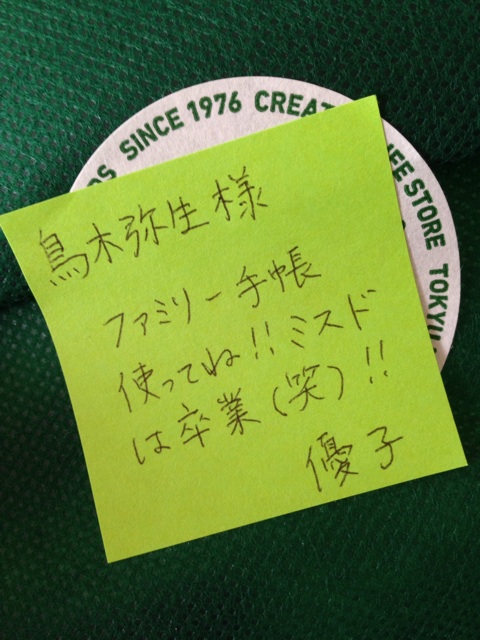 SINCE 1976 CREAT
LIFE STORE TOKYU
鳥木弥生様
ファミリー手帳
使ってね!!ミスド
は卒業(笑)!!
優子